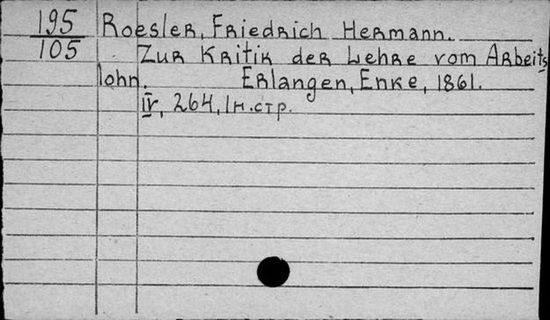 195
105
Roesler, Friedrich Hermann.
Zur Kritik der Lehre vom Arbeits
lohn. Erlangen, Enke, 1861.
IV, 264, 1 н.стр.